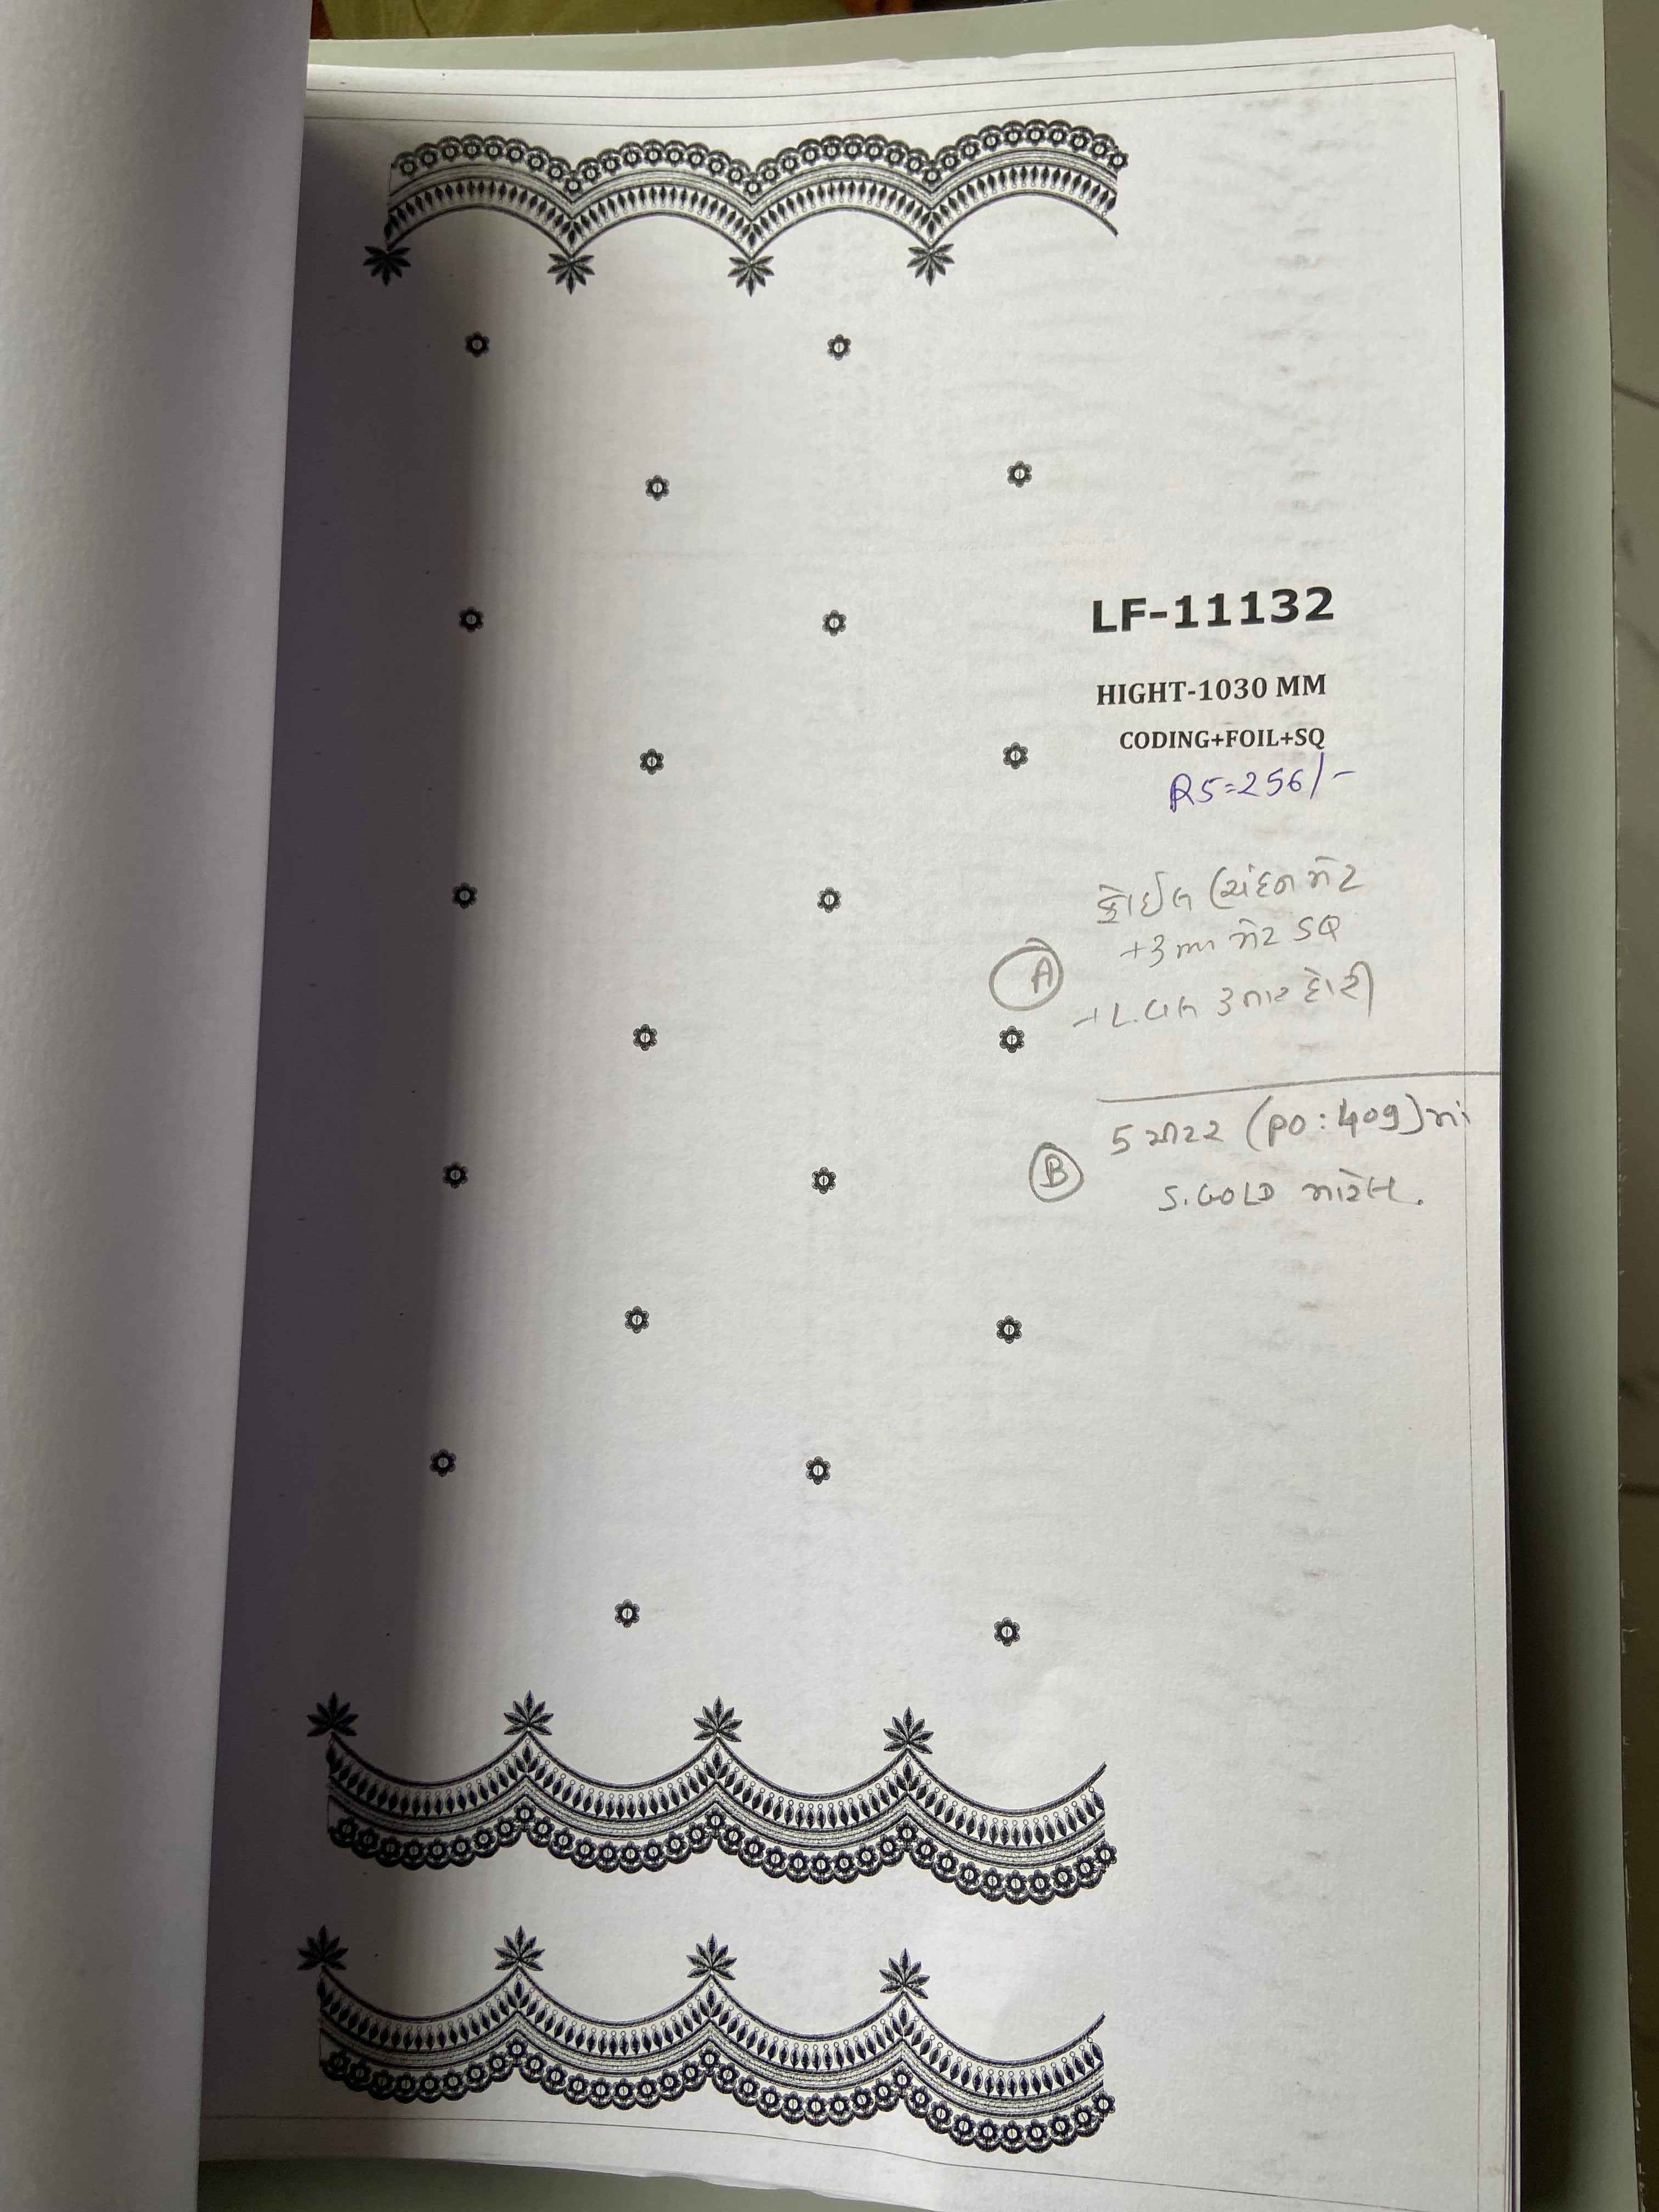 LF-11132
HIGHT-1030 MM
CODING+FOIL+SQ
RS=256/-
ફોઈલ (ચંદન મેટ
+3 mm મેટ SQ
A
+L. 3 તાર દોરી
5 મીટર (PO:409)માં
B
S.GOLD મારેલ.